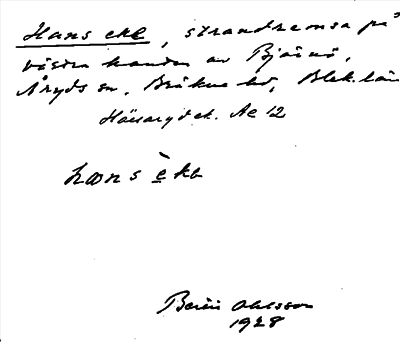 Hans eke, strandremsa på
västra kanten av Bjärnö,
Åryds sn. Bräkne hd, Blek. län
Häradsek. Ae 12
hans èka
Berit Ohlsson
1928